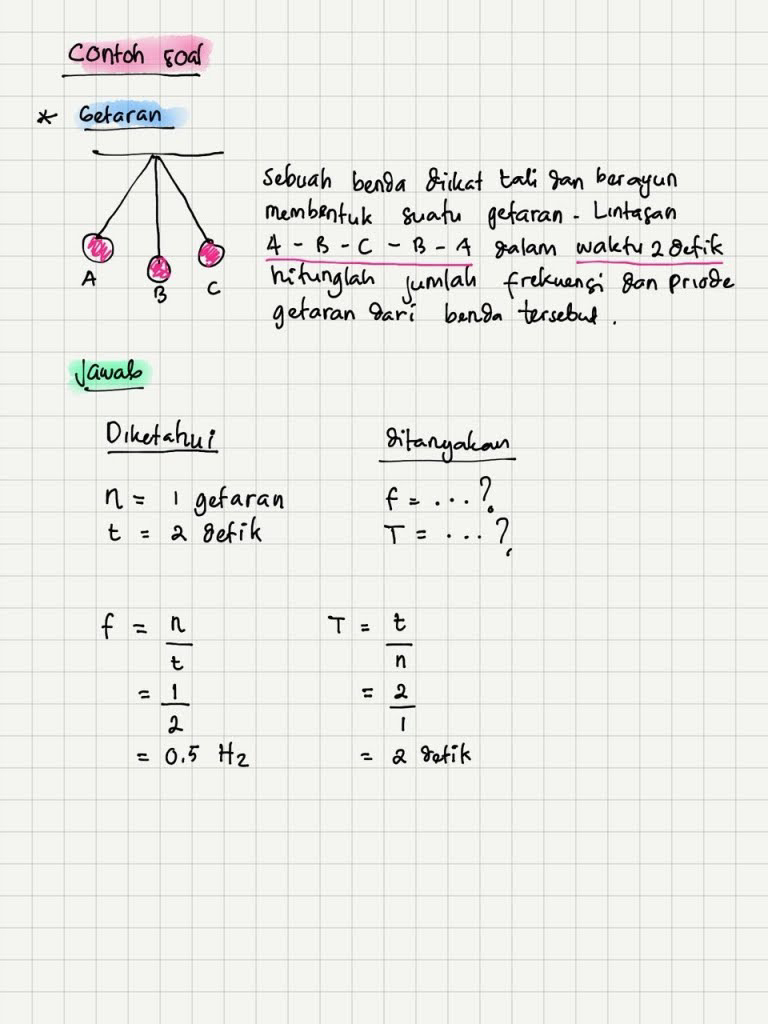 Contoh soal
* Getaran
Sebuah benda diikat tali dan berayun
membentuk suatu getaran. Lintasan
A - B - C - B - A dalam waktu 2 detik
hitunglah jumlah frekuensi dan priode
getaran dari benda tersebut.
A
B
C
Jawab
Diketahui
n = 1 getaran
t = 2 detik
ditanyakan
f = ...?
T = ...?
f = n
t
= 1
2
= 0.5 Hz
T = t
n
= 2
1
= 2 detik